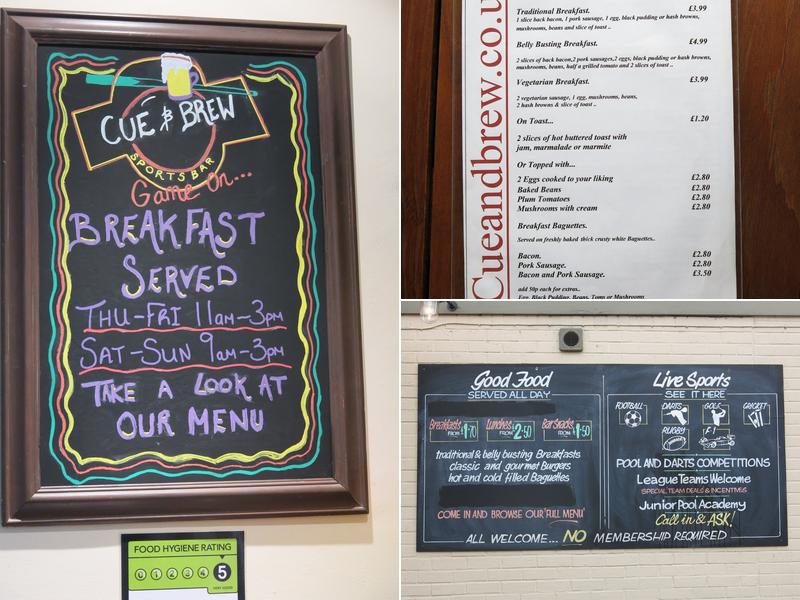 CUE & BREW
SPORTS BAR
Game On...
BREAKFAST
SERVED
THU-FRI 11AM-3PM
SAT-SUN 9AM-3PM
TAKE A LOOK AT
OUR MENU
FOOD HYGIENE RATING
0 1 2 3 4 5
VERY GOOD
Cueandbrew.co.u
Traditional Breakfast. £3.99
1 slice back bacon, 1 pork sausage, 1 egg, black pudding or hash browns,
mushrooms, beans and slice of toast ..
Belly Busting Breakfast. £4.99
2 slices of back bacon,2 pork sausages,2 eggs, black pudding or hash browns,
mushrooms, beans, half a grilled tomato and 2 slices of toast ..
Vegetarian Breakfast. £3.99
2 vegetarian sausage, 1 egg, mushrooms, beans,
2 hash browns & slice of toast ..
On Toast... £1.20
2 slices of hot buttered toast with
jam, marmalade or marmite
Or Topped with...
2 Eggs cooked to your liking £2.80
Baked Beans £2.80
Plum Tomatoes £2.80
Mushrooms with cream £2.80
Breakfast Baguettes.
Served on freshly baked thick crusty white Baguettes..
Bacon. £2.80
Pork Sausage. £2.80
Bacon and Pork Sausage. £3.50
add 50p each for extras..
Egg, Black Pudding, Beans, Toms or Mushrooms
Good Food
SERVED ALL DAY
Breakfasts FROM £1.70
Lunches FROM £2.50
Bar Snacks FROM £1.50
traditional & belly busting Breakfasts
classic and gourmet Burgers
hot and cold filled Baguettes
COME IN AND BROWSE OUR 'FULL MENU'
Live Sports
SEE IT HERE
FOOTBALL DARTS GOLF CRICKET
RUGBY F1
POOL AND DARTS COMPETITIONS
League Teams Welcome
SPECIAL TEAM DEALS & INCENTIVES
Junior Pool Academy
Call in & ASK!
ALL WELCOME... NO MEMBERSHIP REQUIRED